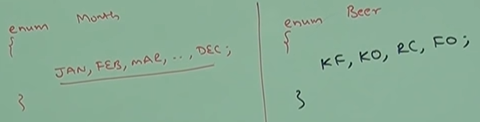 enum Month
{
JAN, FEB, MAR, .., DEC;
}
enum Beer
{
KF, KO, RC, FO;
}